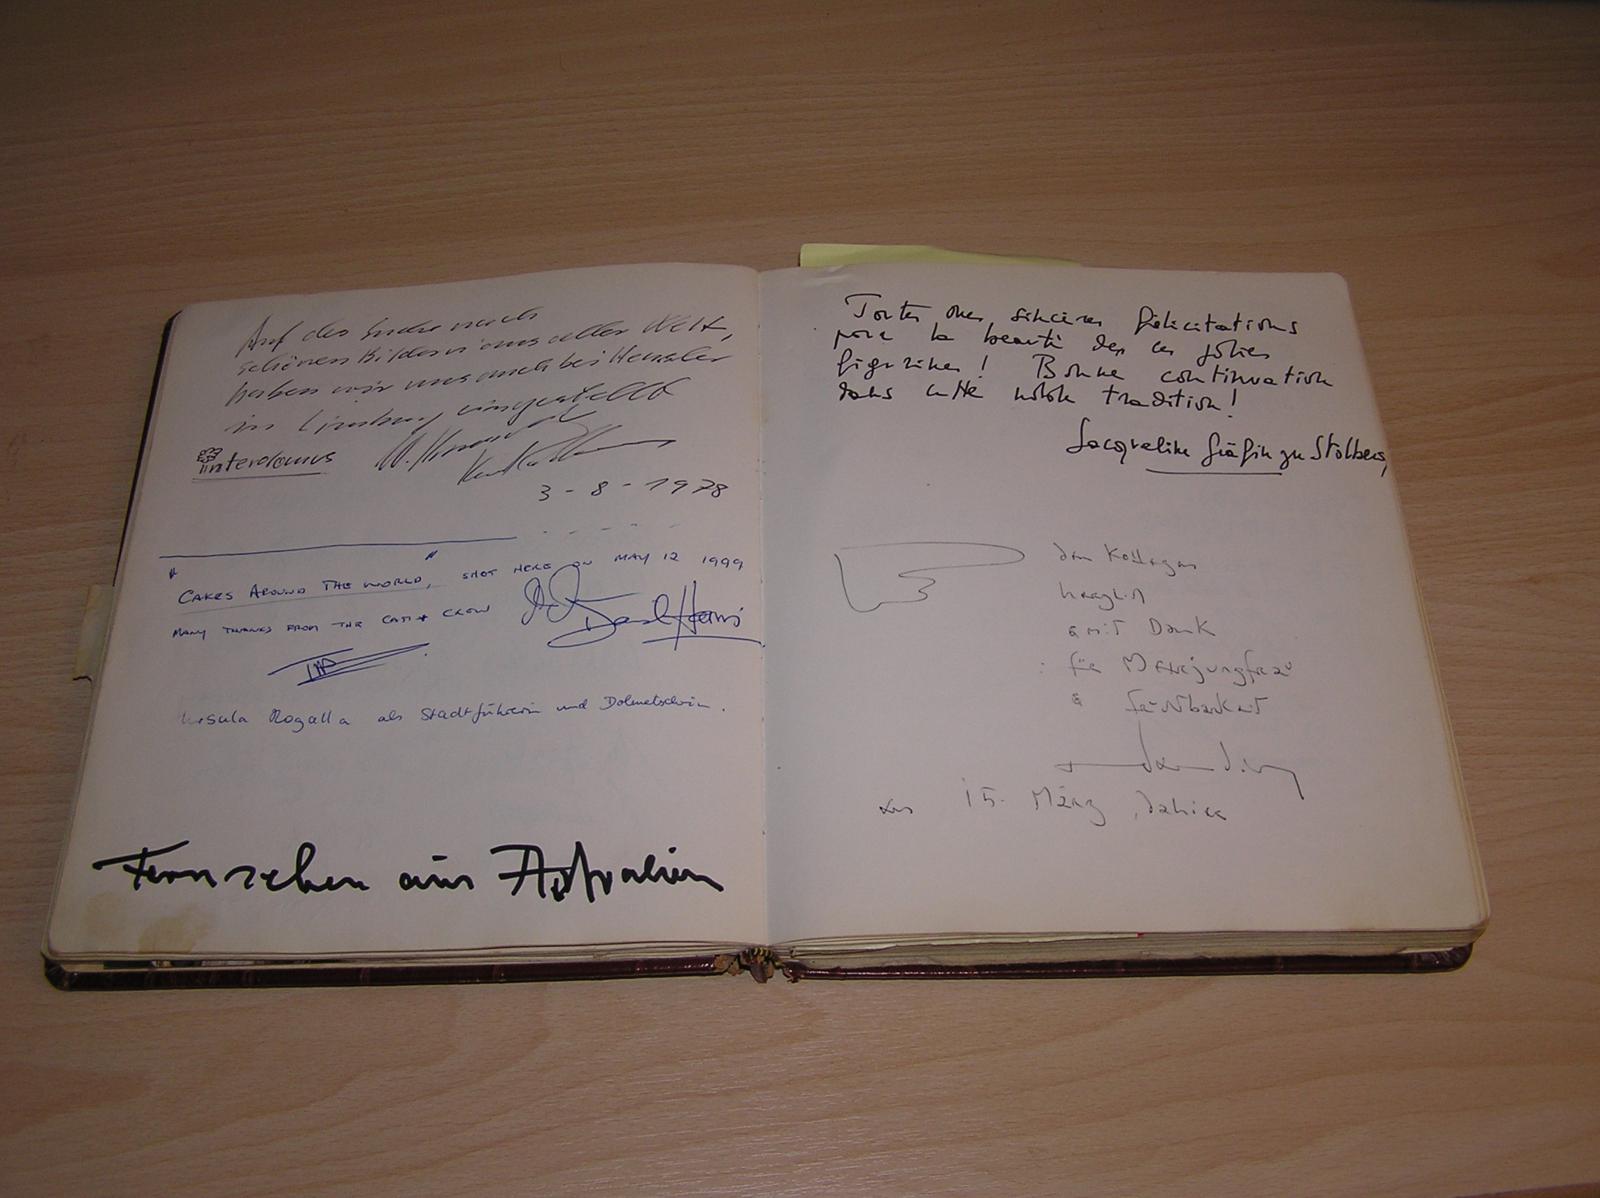 Auf der Suche nach
schönen Bildern aus aller Welt,
haben wir uns auch bei Heussler
in Limburg eingestellt
interdomus
3-8-1978
"CAKES AROUND THE WORLD", SHOT HERE ON MAY 12 1999
MANY THANKS FROM THE CAST + CREW
Ursula Rogalla als Stadtführerin und Dolmetscherin.
Fernsehen aus Australien
Toutes mes sincères félicitations
pour la beauté de ces jolies
figurines! Bonne continuation
dans cette noble tradition!
Jacqueline Gräfin zu Stolberg
dem Kollegen
herzlich
mit Dank
für Meerjungfrau
&
15. März